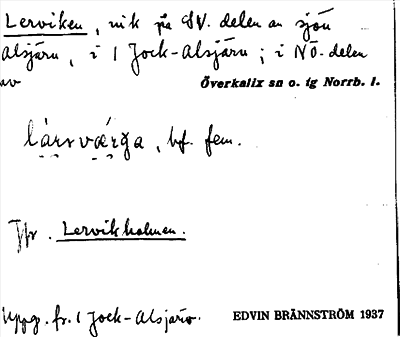 Lerviken, vik på SV. delen av sjön
Alsjärv, i 1 Jock-Alsjärv; i NÖ-delen
av
Överkalix sn o. tg Norrb. l.
bf. fem.
Jfr. Lervikholmen.
Uppg. fr. 1 Jock-Alsjärv.
EDVIN BRÄNNSTRÖM 1937